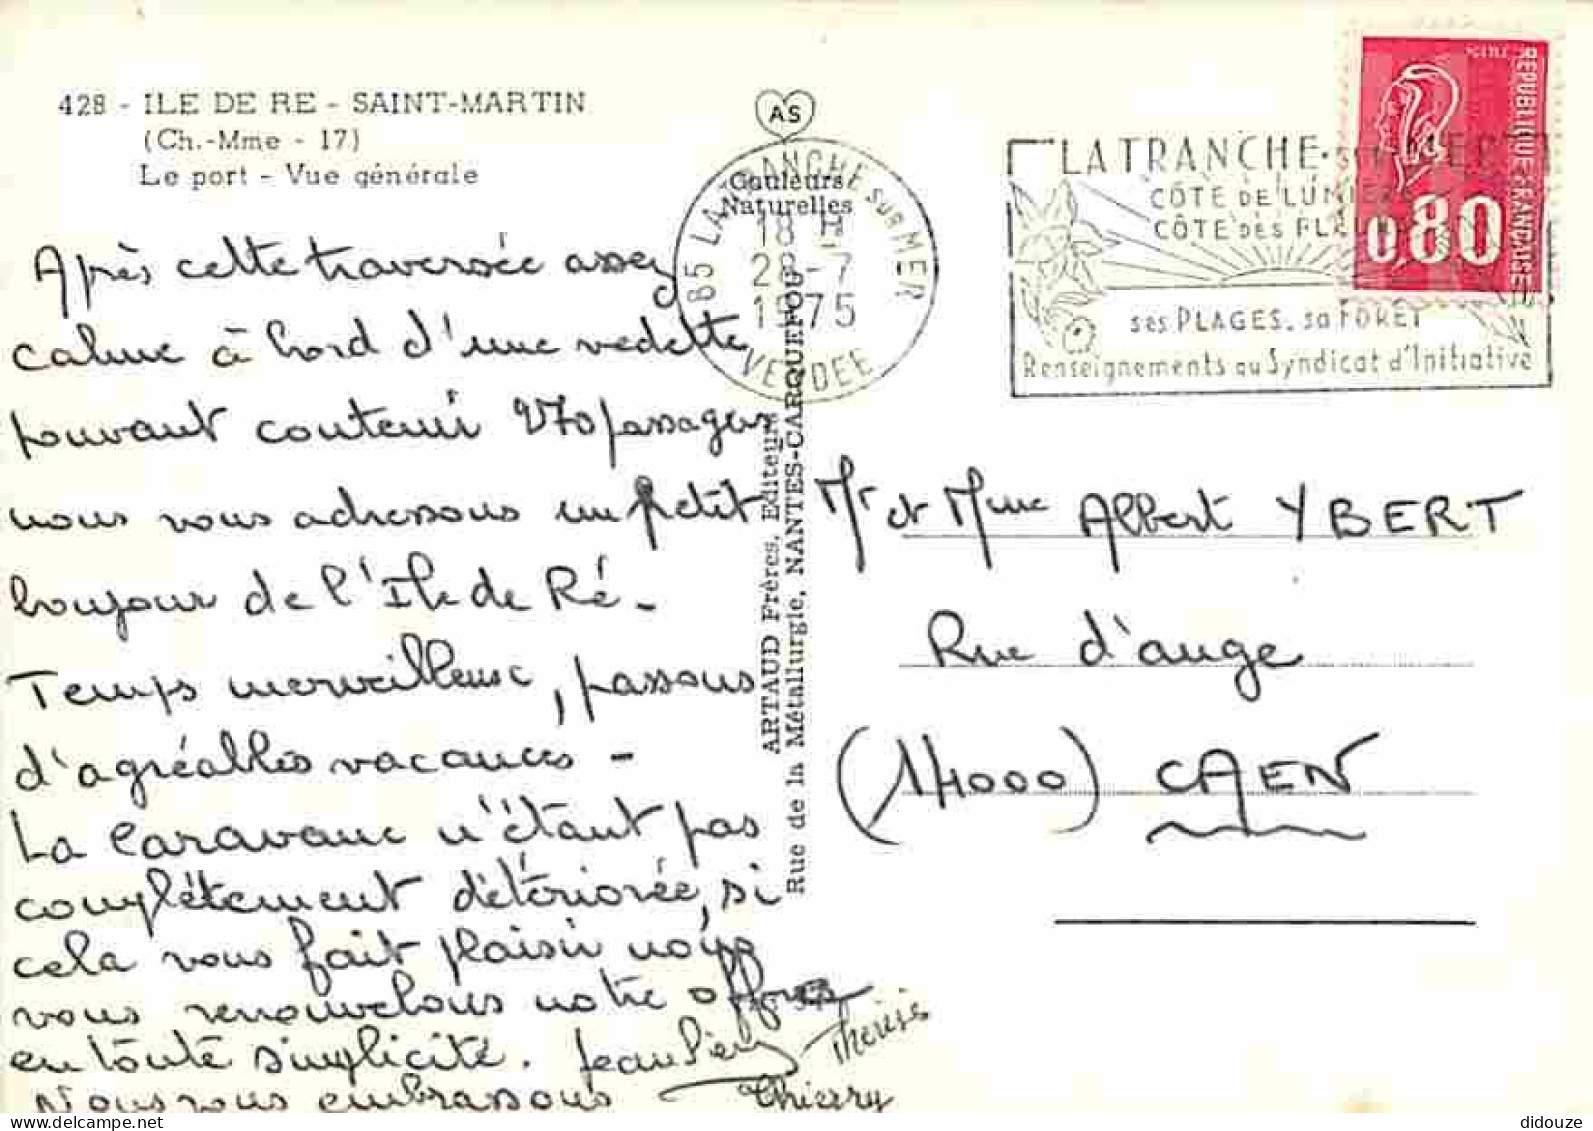 428 - ILE DE RE - SAINT-MARTIN
(Ch.-Mme - 17)
Le port - Vue générale
Après cette traversée assez
calme à bord d'une vedette
pouvant contenir 270 passagers
nous vous adressons un petit
bonjour de l'Ile de Ré -
Temps merveilleux, passons
d'agréables vacances -
La Caravane n'étant pas
complètement détériorée, si
cela vous fait plaisir nous
vous renouvelons notre offre
en toute simplicité.
Nous vous embrassons
Jean Pierre
Thérèse
Thierry
AS
Couleurs
Naturelles
ARTAUD Frères, Editeurs
Rue de la Métallurgie, NANTES-CARQUEFOU
85 LA TRANCHE SUR MER
18 H
28-7
1975
VENDEE
LA TRANCHE-SUR-MER
CÔTE DE LUMIERE
CÔTE DES FLEURS
ses PLAGES, sa FORET
Renseignements au Syndicat d'Initiative
REPUBLIQUE FRANÇAISE
0,80
Mr et Mme Albert YBERT
Rue d'auge
(14000) CAEN
didouze